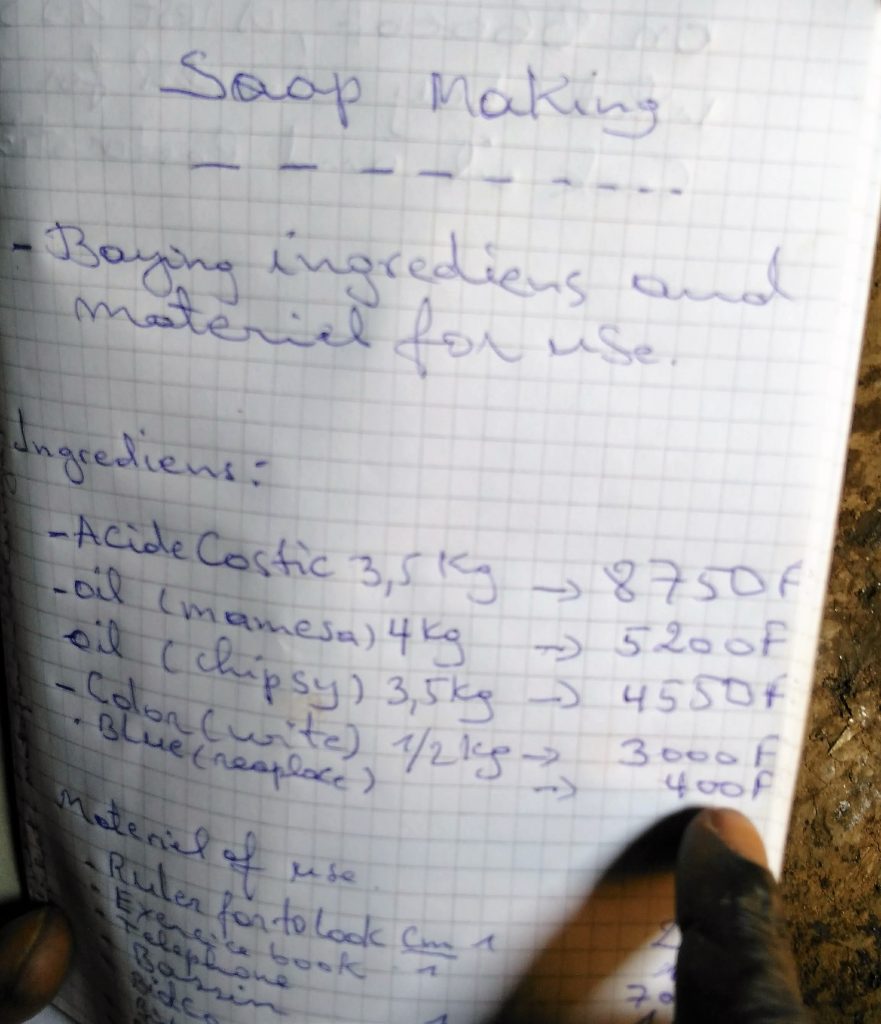 Soap Making
- Baying ingrediens and
materiel for use.
Ingrediens:
- Acide Costic 3,5 Kg → 8750F
- oil (mamesa) 4 kg → 5200F
oil (chipsy) 3,5 kg → 4550F
- Color (write) 1/2 kg → 3000F
. Blue → 400F
Materiel of use.
- Ruler for to look cm 1
Exercice book 1
Telephone
Bassin